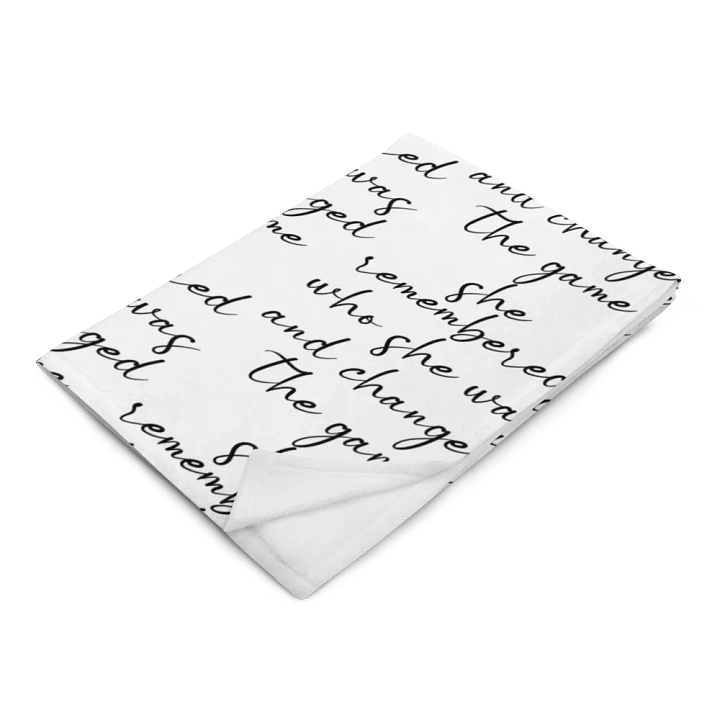 ed and change
the game
was
ged
me
she
remembered
who she wa
ed and change
the ga
was
ged
s
rememb